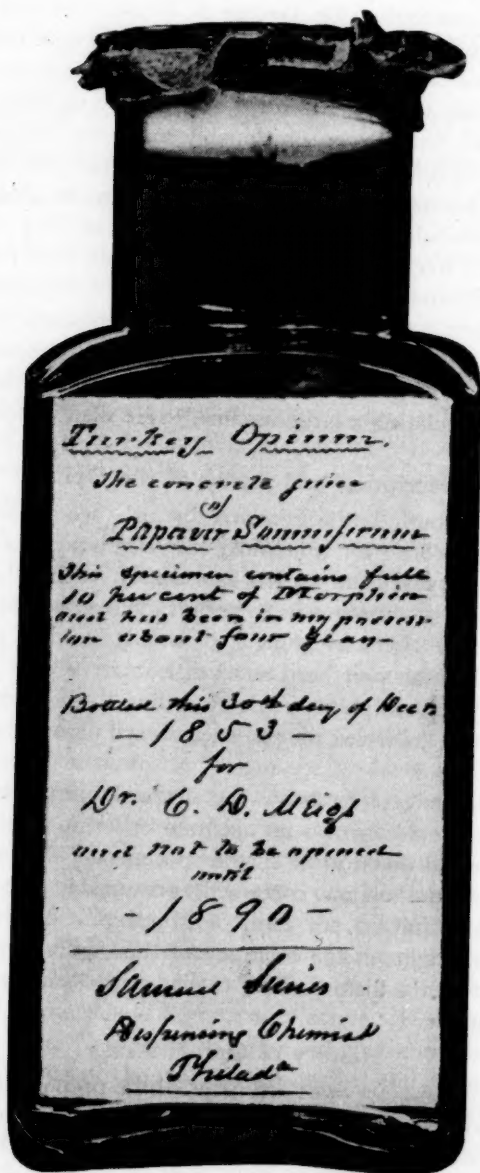 Turkey Opium.
The concrete juice
of
Papaver Somniferum
This specimen contains full
10 per cent of Morphia
and has been in my possess-
ion about four years-
Bottled this 30th day of Decr
- 1853 -
for
Dr. C. D. Meigs
and not to be opened
until
- 1890 -
Samuel Simes
Dispensing Chemist
Philada